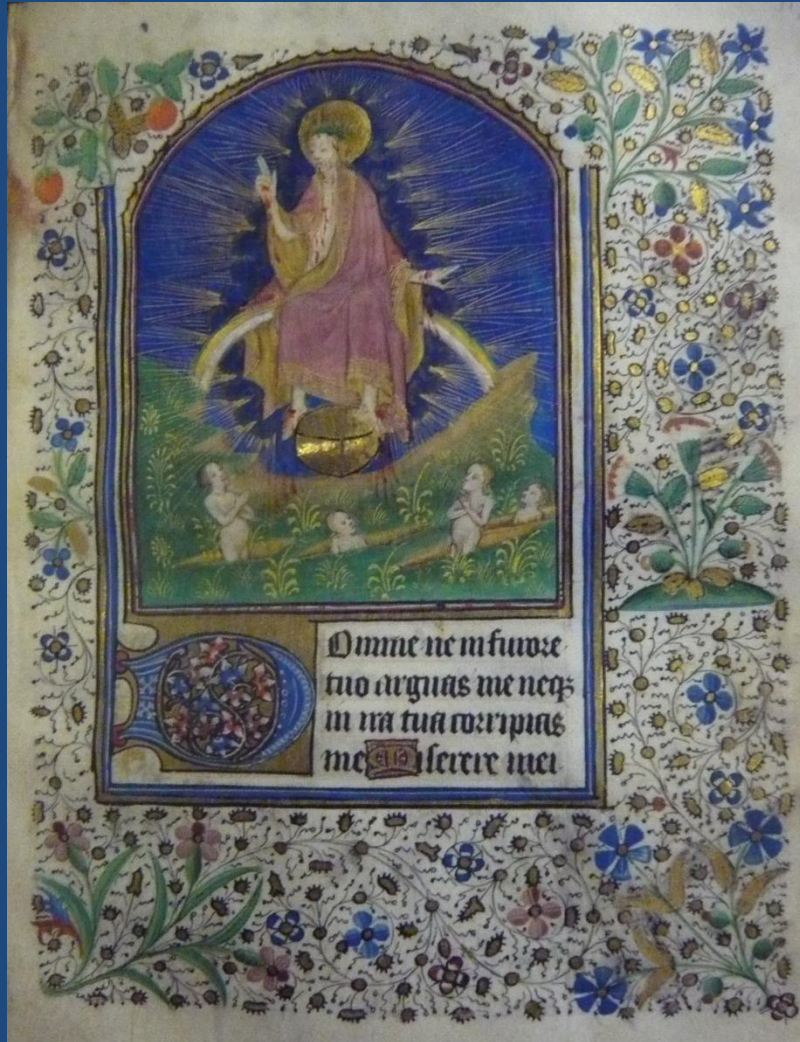 DOmine ne in furore
tuo arguas me neqꝫ
in ira tua corripias
me Miserere mei